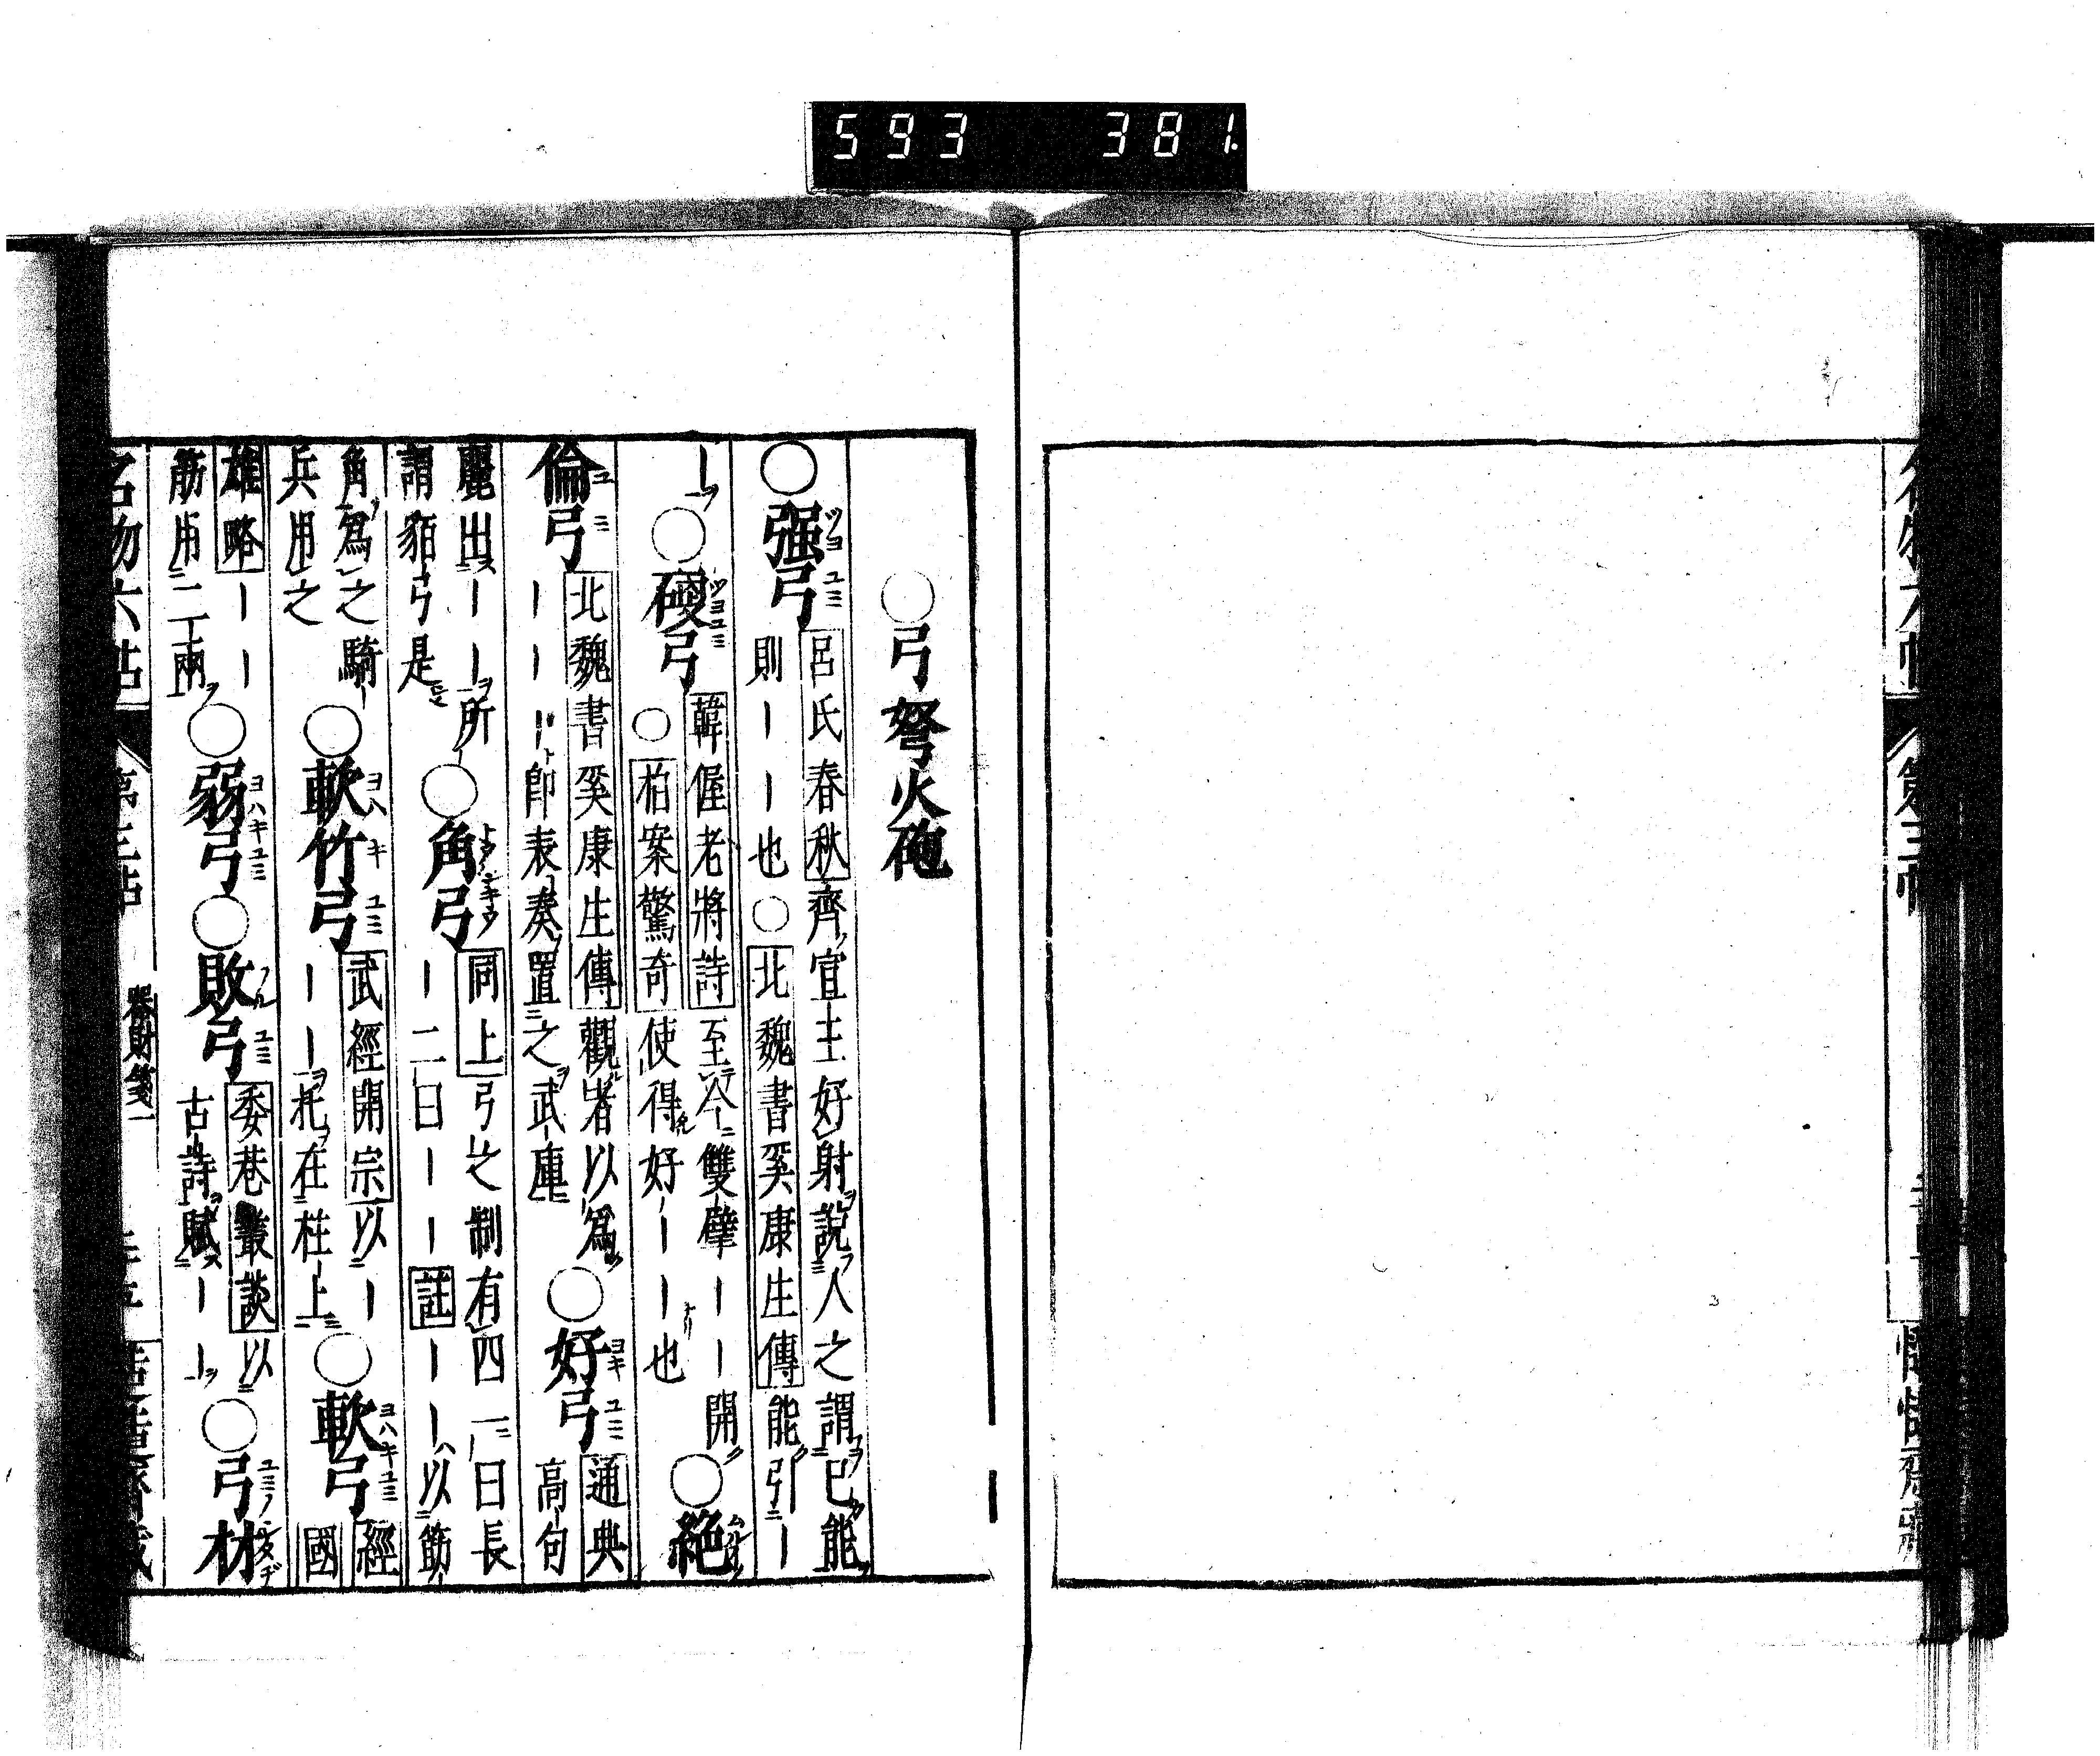 593 381.
○弓弩火砲
○强弓 呂氏春秋齊宣王好射說人之謂已能
則ーー也○北魏書奚康生傳能引ー
ー○硬弓 韓偓老將詩至今雙擘ーー開
○柏案驚奇使得好ーー也 ○絶
倫弓 北魏書奚康生傳觀者以爲
ーー卽表奏置之武庫 ○好弓 通典
高句
麗出ーー所
謂貊弓是 ○角弓 同上弓之制有四一曰長
ー二曰ーー註ーー以筋
角爲之騎
兵用之 ○軟竹弓 武經開宗以ー
ーー托在柱上 ○軟弓 經國
雄略ーー
筋用二十兩 ○弱弓 ○敗弓 委巷叢談以
古詩賦ーー ○弓材
名物六帖 器財箋二